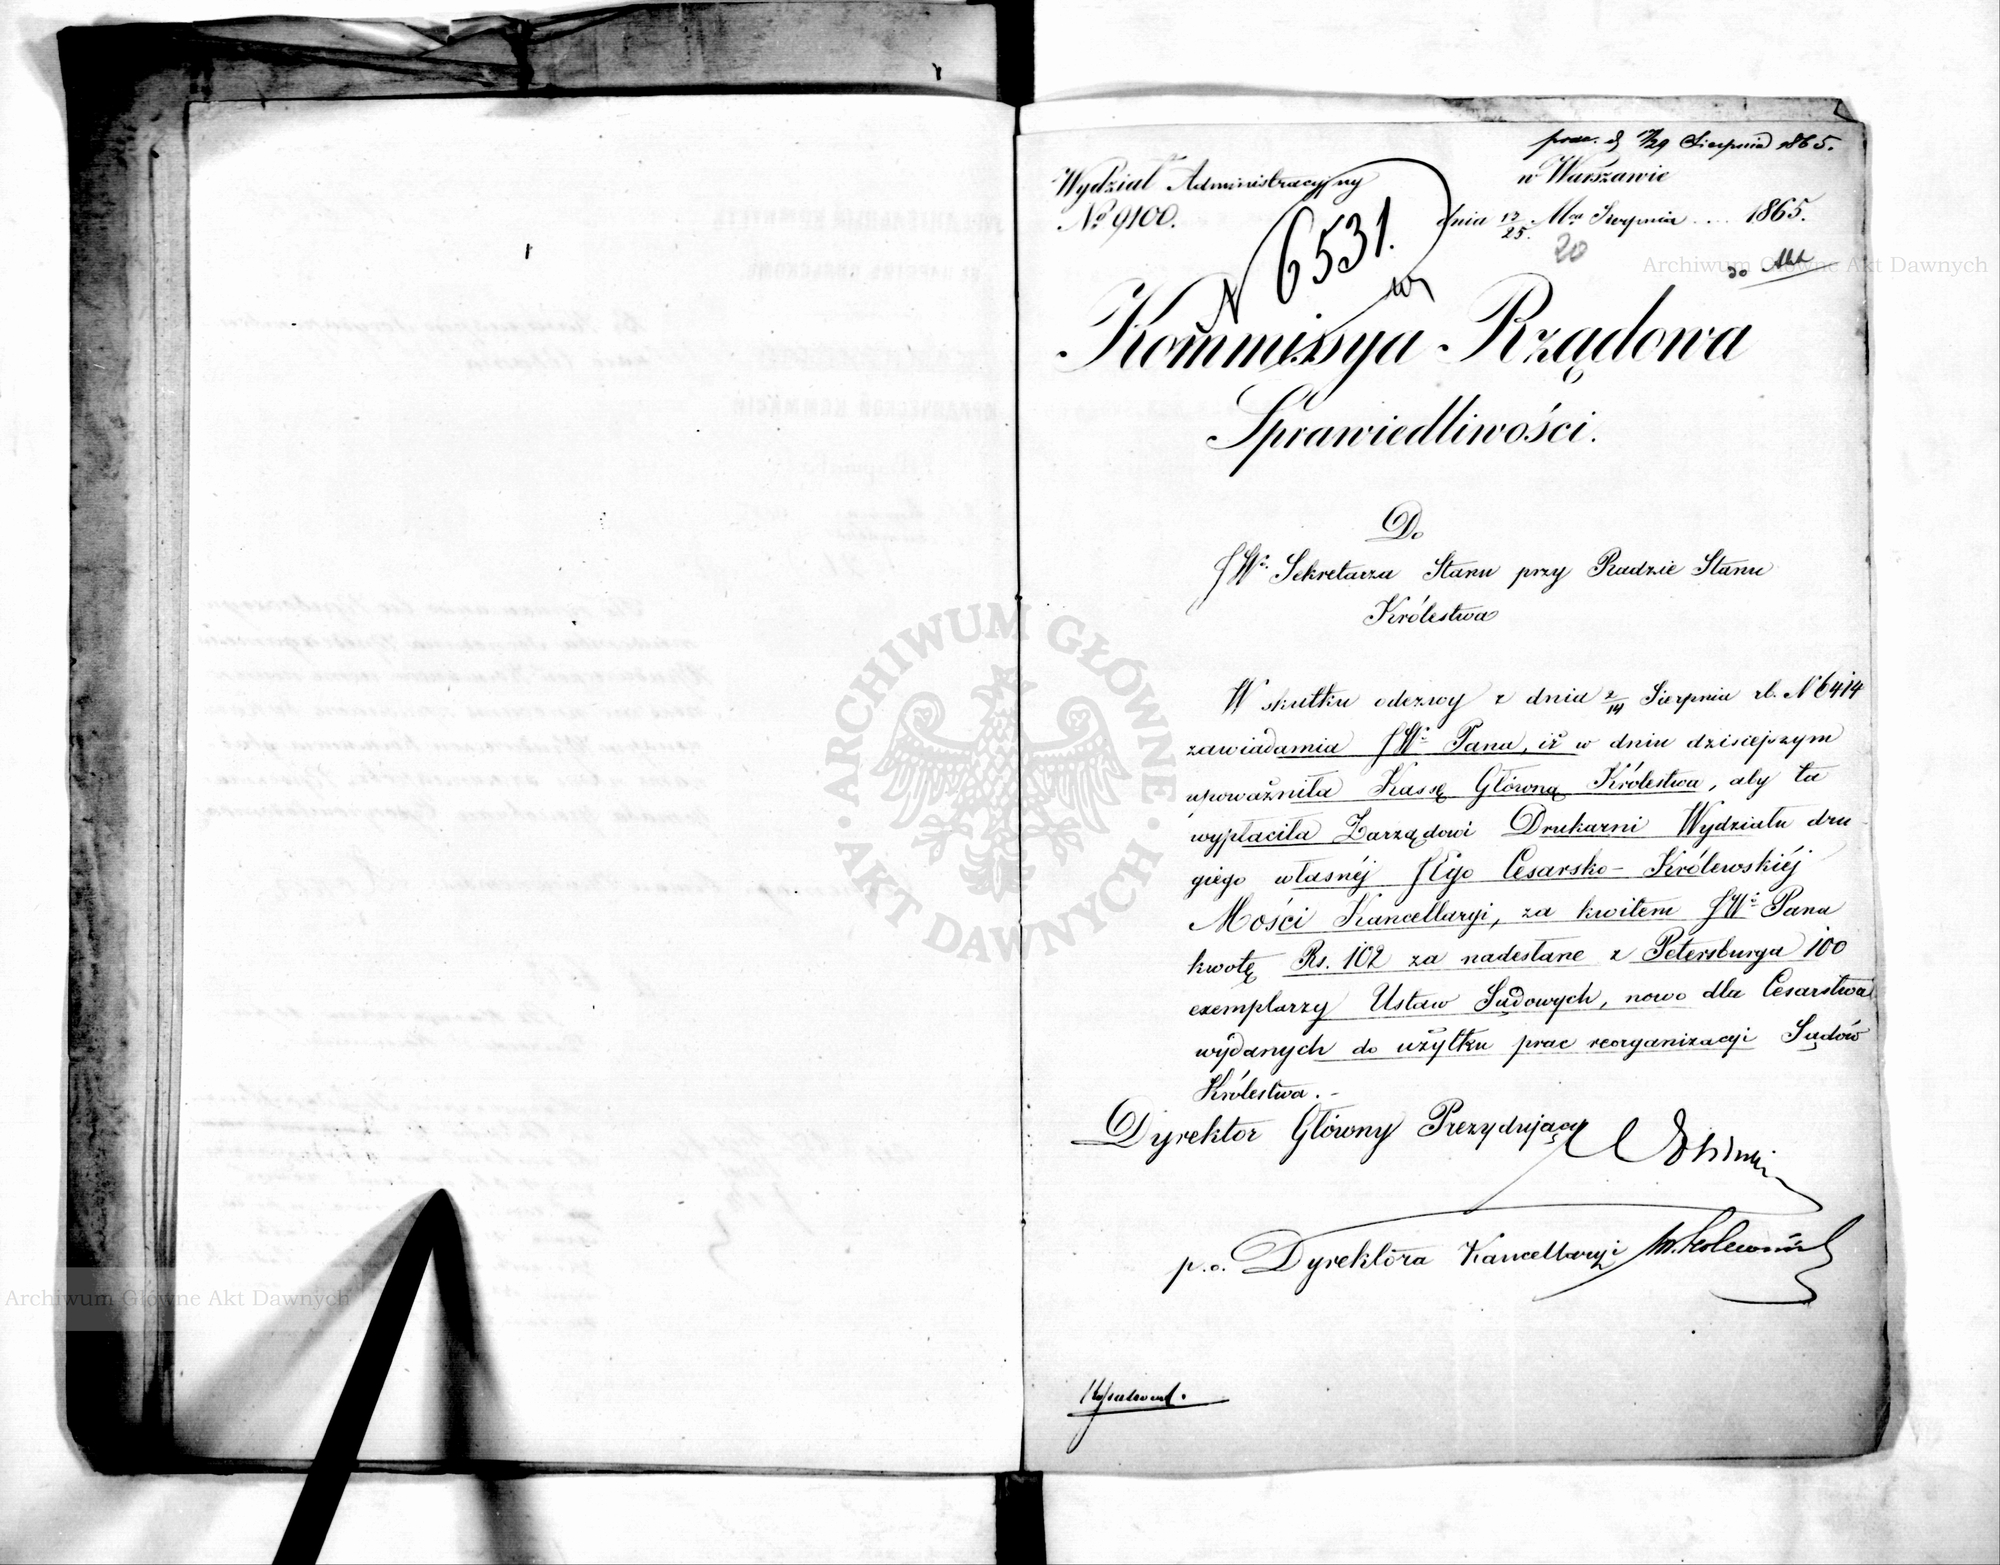 prae. d 17/29 Sierpnia 1865.
Wydział Administracyjny
w Warszawie
No 9100.
dnia 13/25. Mca Sierpnia .... 1865.
N 6531.
20
do Akt
Kommissya Rządowa
Sprawiedliwości.
Do
JWo. Sekretarza Stanu przy Radzie Stanu
Królestwa
W skutku odezwy z dnia 2/14 Sierpnia rb. N 6414
zawiadamia JWo. Pana, iż w dniu dzisiejszym
upoważniła Kassę Główną Królestwa, aby ta
wypłaciła Zarządowi Drukarni Wydziału dru
giego własnéj JEgo Cesarsko-Królewskiéj
Mości Kancellaryi, za kwitem JWo. Pana
kwotę Rs. 102 za nadesłane z Petersburga 100
exemplarzy Ustaw Sądowych, nowo dla Cesarstwa
wydanych do użytku prac reorganizacyi Sądów
Królestwa.-
Dyrektor Główny Prezydujący
p.o. Dyrektora Kancellaryi
ARCHIWUM GŁÓWNE AKT DAWNYCH
Archiwum Główne Akt Dawnych
Archiwum Główne Akt Dawnych